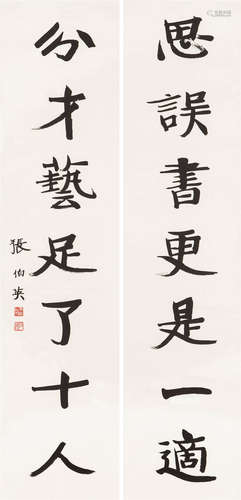 思誤書更是一適
分才藝足了十人
張伯英